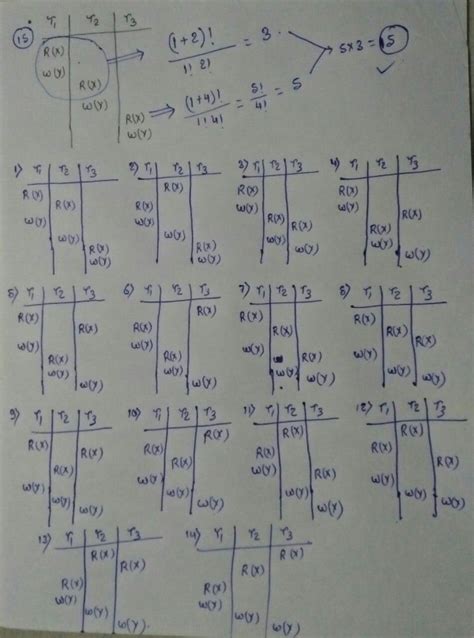 15) T1 T2 T3
R(X)
W(Y)
R(X)
W(Y)
R(X)
W(Y)
⇒ (1+2)! / 1! 2! = 3
⇒ (1+4)! / 1! 4! = 5! / 4! = 5
5x3 = 15 ✓
1) T1 T2 T3
R(X)
R(X)
W(Y)
W(Y)
R(X)
W(Y)
2) T1 T2 T3
R(X)
R(X)
W(Y)
W(Y)
R(X)
W(Y)
3) T1 T2 T3
R(X)
W(Y)
R(X)
R(X)
W(Y)
W(Y)
4) T1 T2 T3
R(X)
W(Y)
R(X)
R(X)
W(Y)
W(Y)
5) T1 T2 T3
R(X)
R(X)
W(Y)
R(X)
W(Y)
W(Y)
6) T1 T2 T3
R(X)
R(X)
W(Y)
R(X)
W(Y)
W(Y)
7) T1 T2 T3
R(X)
R(X)
W(Y)
R(X)
W(Y)
W(Y)
8) T1 T2 T3
R(X)
R(X)
R(X)
W(Y)
W(Y)
W(Y)
9) T1 T2 T3
R(X)
R(X)
R(X)
W(Y)
W(Y)
W(Y)
10) T1 T2 T3
R(X)
R(X)
R(X)
W(Y)
W(Y)
W(Y)
11) T1 T2 T3
R(X)
R(X)
R(X)
W(Y)
W(Y)
W(Y)
12) T1 T2 T3
R(X)
R(X)
R(X)
W(Y)
W(Y)
W(Y)
13) T1 T2 T3
R(X)
R(X)
R(X)
W(Y)
W(Y)
W(Y)
14) T1 T2 T3
R(X)
R(X)
R(X)
W(Y)
W(Y)
W(Y)